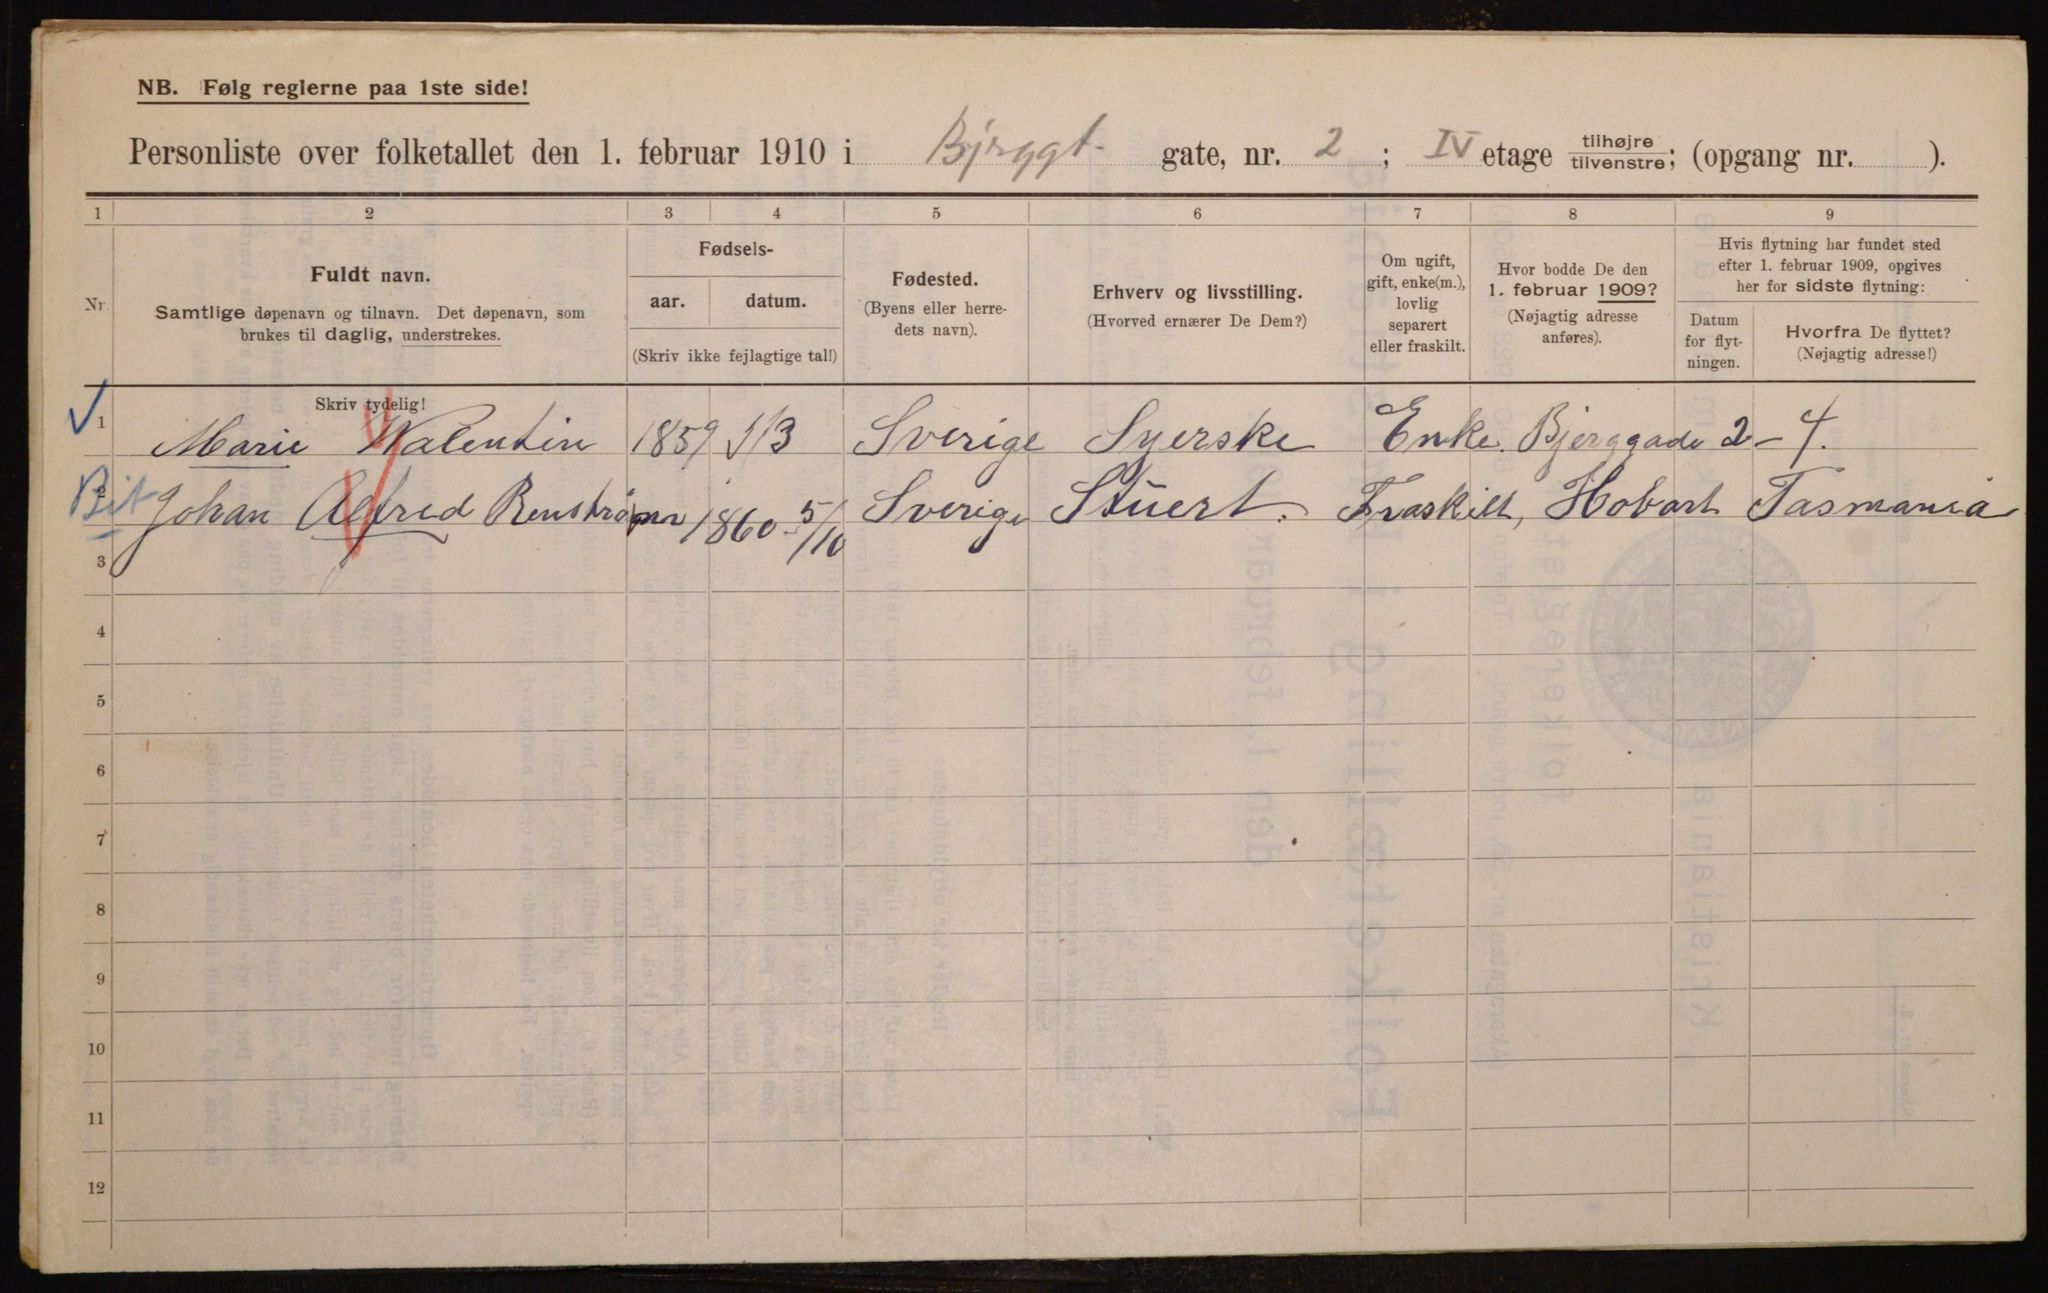 NB. Følg reglerne paa 1ste side!
Personliste over folketallet den 1. februar 1910 i Bjerggt. gate, nr. 2 ; IV etage tilhøjre/tilvenstre; (opgang nr. ).
1 2 3 4 5 6 7 8 9
Nr.
Fuldt navn.
Samtlige døpenavn og tilnavn. Det døpenavn, som
brukes til daglig, understrekes.
Skriv tydelig!
Fødsels-
aar. datum.
(Skriv ikke fejlagtige tal!)
Fødested.
(Byens eller herre-
dets navn).
Erhverv og livsstilling.
(Hvorved ernærer De Dem?)
Om ugift,
gift, enke(m.),
lovlig
separert
eller fraskilt.
Hvor bodde De den
1. februar 1909?
(Nøjagtig adresse
anføres).
Hvis flytning har fundet sted
efter 1. februar 1909, opgives
her for sidste flytning:
Datum
for flyt-
ningen.
Hvorfra De flyttet?
(Nøjagtig adresse!)
1 Marie Valentin 1859 Sverige Syerske Enke. Bjerggade 2-4.
Bit 2 Johan Alfred Renström 1860 5/10 Sverige Stuert. Fraskilt, Hobart Tasmania
3
4
5
6
7
8
9
10
11
12